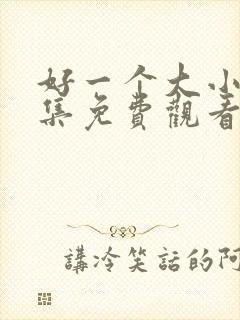 好一个大小
集免費觀看
講冷笑話的阿